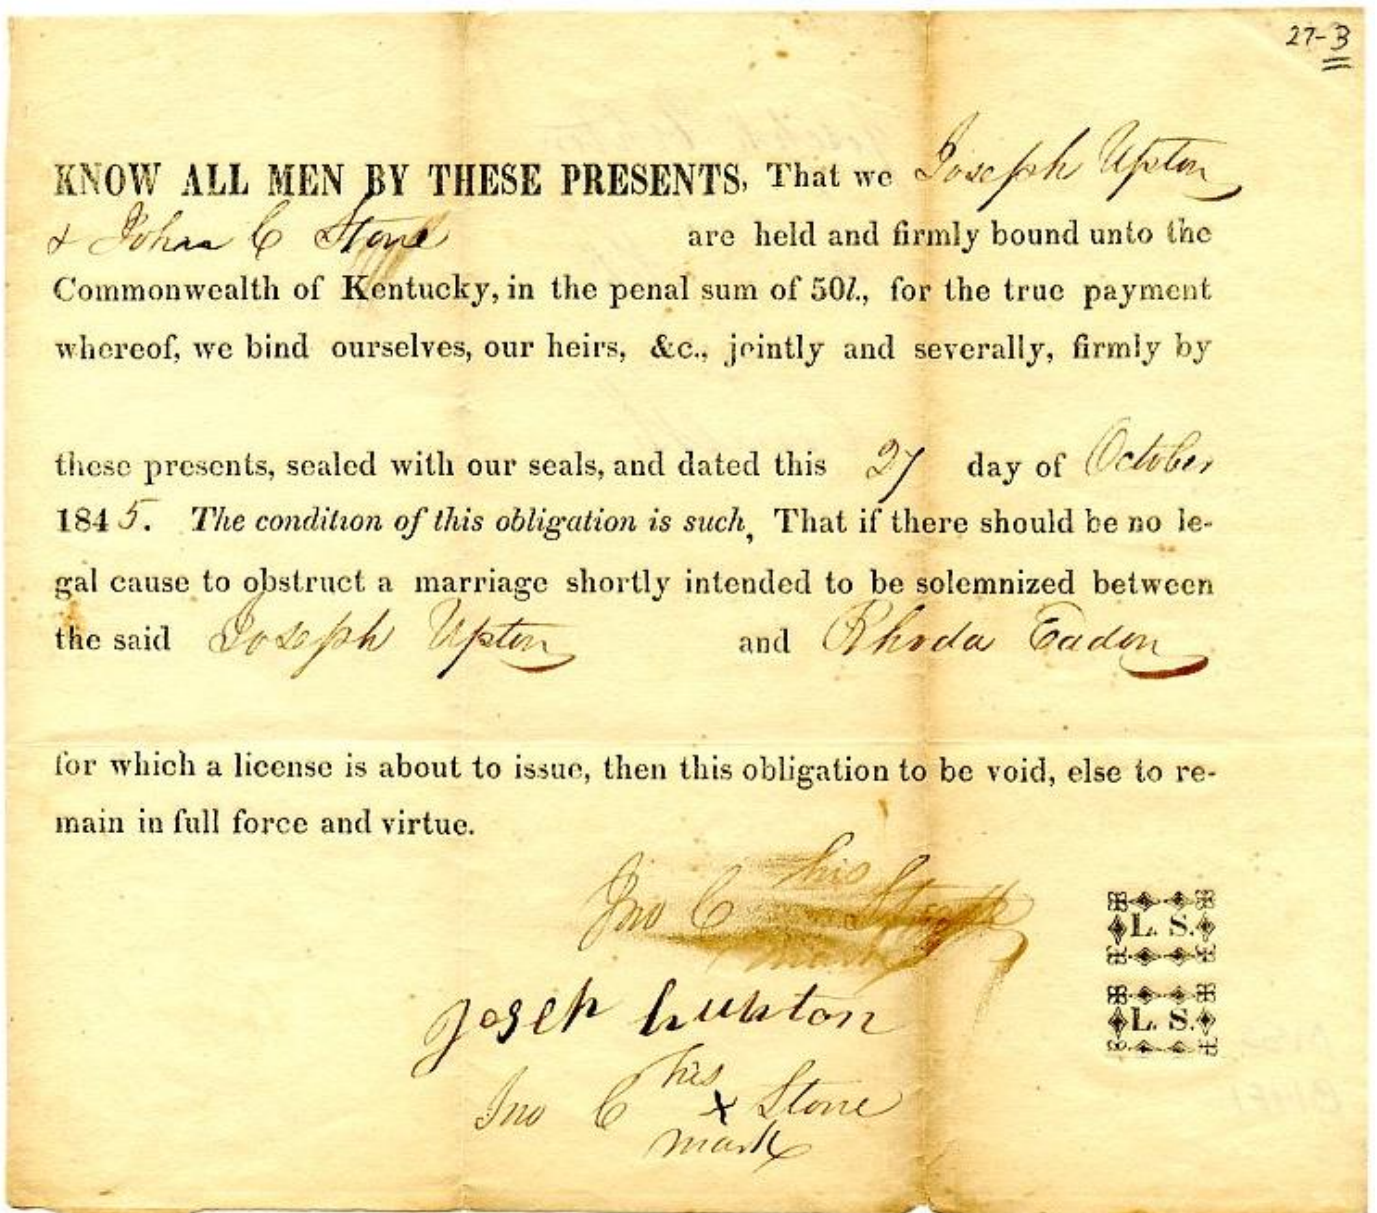 27-3
KNOW ALL MEN BY THESE PRESENTS, That we Joseph Upton
& John C Stone are held and firmly bound unto the
Commonwealth of Kentucky, in the penal sum of 50l., for the true payment
whereof, we bind ourselves, our heirs, &c., jointly and severally, firmly by
these presents, sealed with our seals, and dated this 27 day of October
1845. The condition of this obligation is such, That if there should be no le-
gal cause to obstruct a marriage shortly intended to be solemnized between
the said Joseph Upton and Rhoda Eadon
for which a license is about to issue, then this obligation to be void, else to re-
main in full force and virtue.
his
Jno C
mark
L. S.
Joseph Upton
L. S.
his
Jno C x Stone
mark